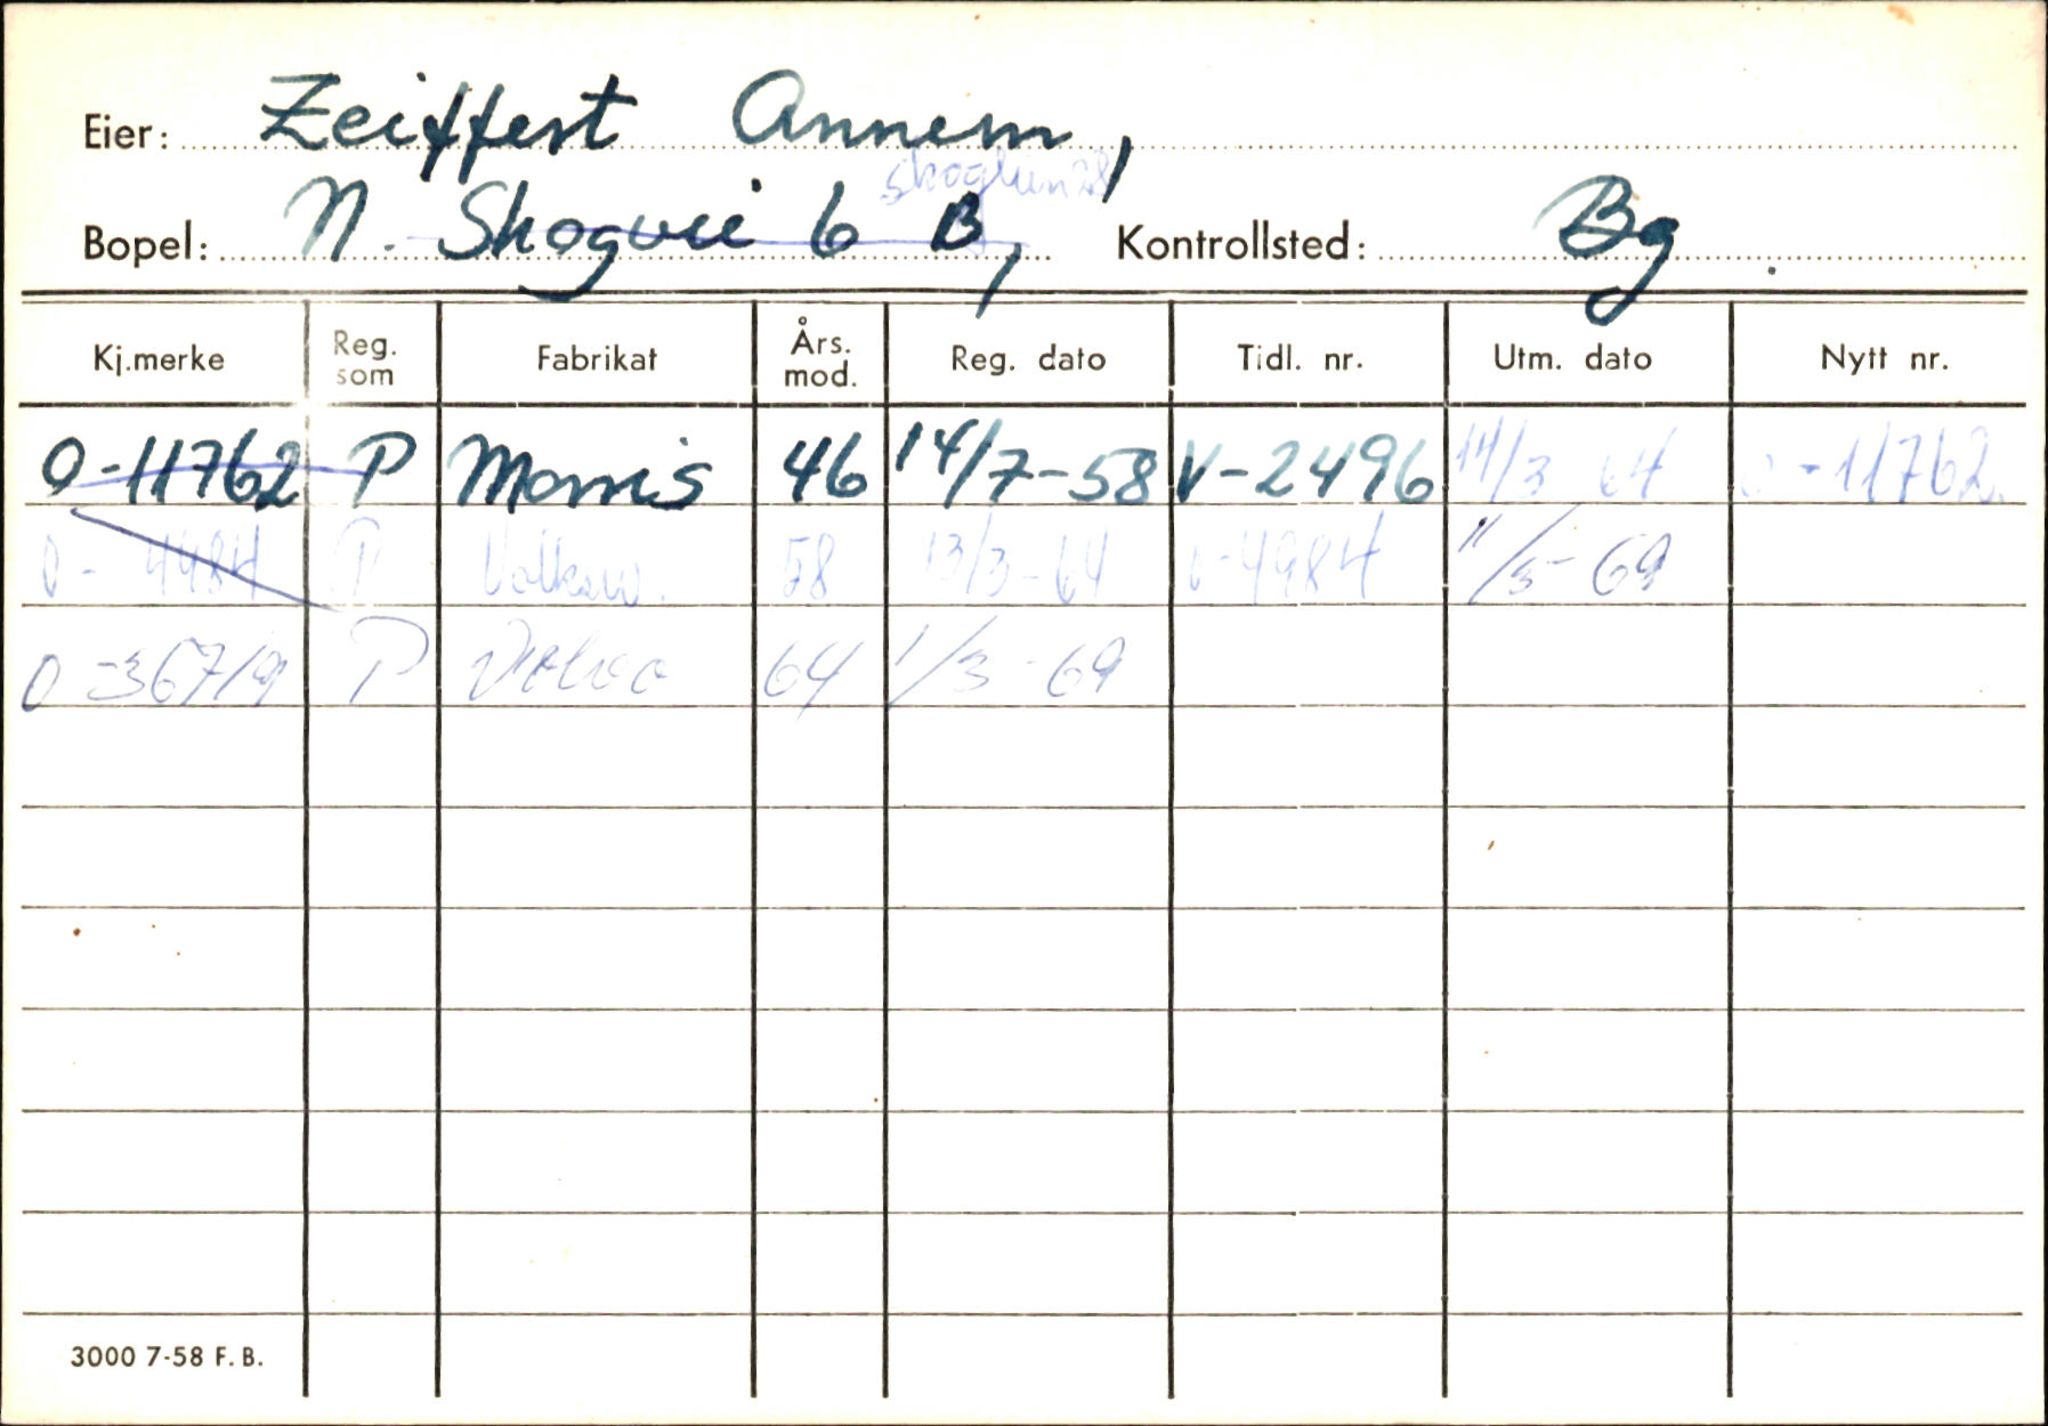 Eier: Zeiffert Annem,
skoglien 28
Bopel: N. Skogvei 6 B, Kontrollsted: Bg
Kj.merke Reg. som Fabrikat Års. mod. Reg. dato Tidl. nr. Utm. dato Nytt nr.
O-11762 P Morris 46 14/7-58 V-2496 14/3 64 O-11762.
O-4484 P Volksw. 58 13/3-64 O-4984 11/3-69
O-36719 P Volvo 64 1/3-69
3000 7-58 F. B.